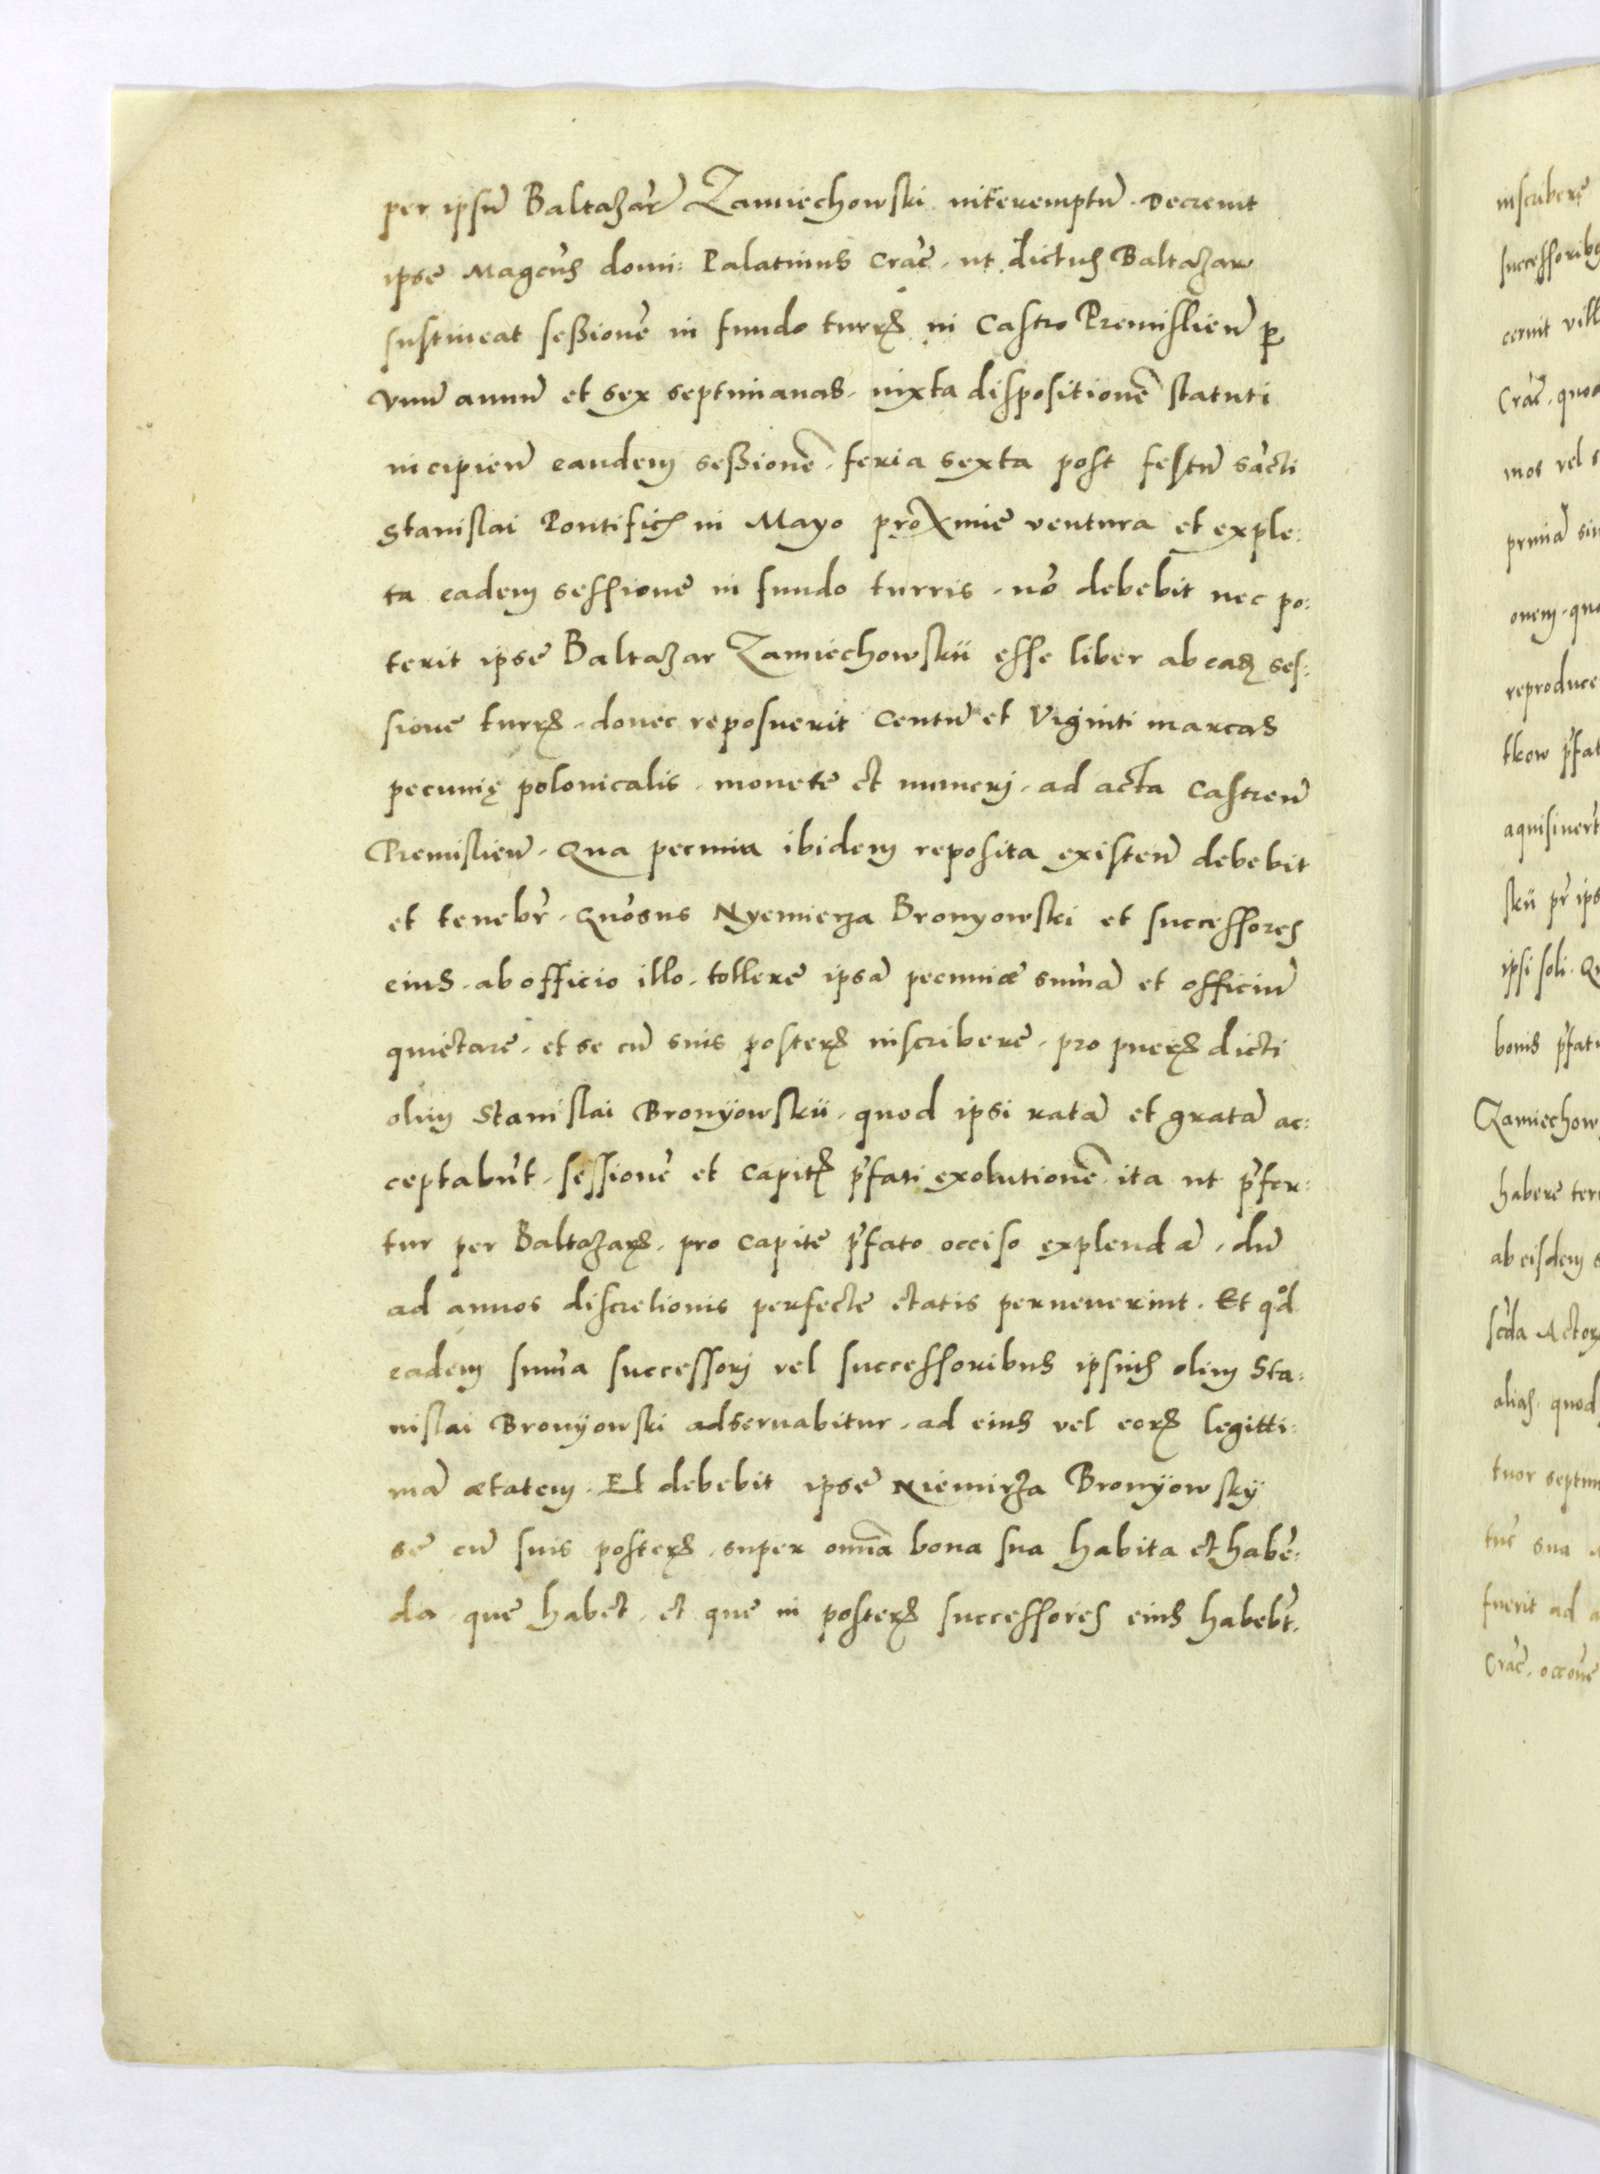 per ipsū Baltazar̄ Zamiechowski interemptū. Decreuit
ipse Magcūs domi: Palatinus Crac̄. ut dictus Baltazar
sustineat seßionē in fundo turrꝭ in Castro Premislien̄ ꝑ
vnū annū et sex septimanas. iuxta dispositionē statuti
incipien̄ eandem seßionē. feria sexta post festū sācti
Stanislai Pontificꝭ in Mayo proxime ventura et exple:
ta eadem sessione in fundo turris. nō debebit nec po:
terit ipse Baltazar Zamiechowskii esse liber ab eadꝫ ses:
sione turrꝭ. donec reposuerit Centū et Viginti marcas
pecunię polonicalis. monete et numeri. ad acta Castren̄
Premislien̄. Qua pecunia ibidem reposita existen̄ debebit
et tenebr̄. Gn̄osus Nyemierza Bronyowski et successores
eius. ab officio illo. tollere ipsā pecuniæ sum̄ā et officiū
quietare. et se cū suis posterꝭ inscribere. pro puerꝭ dicti
olim Stanislai Bronÿowskii. quod ipsi ratā et gratā ac:
ceptabūt. sessionē et capitꝭ p̄fati exolutionē. ita ut p̄fer:
tur per Baltazarꝭ. pro capite p̄fato occiso explendā. dū
ad annos discretionis perfecte etatis peruenerint. Et qͦd
eadem sum̄a successori vel successoribus ipsius olim Sta:
nislai Bronÿowski adseruabitur. ad eius vel eorꝭ legitti:
mā ætatem. Et debebit ipse Niemirza Bronÿowskÿ
se cū suis posterꝭ. super om̄ia bona sua habita et habē:
da. que habet. et que in posterꝭ successores eius habebt̄.
inscribere
successoribꝫ
cernit vill
Crac̄. quod
mos vel s
primā sin
onem. quo
reproduce
tkow p̄fat
aquisiuerit
skii pr̄ ips
ipsi soli. Qu
bonis p̄fati
Zamiechow
habere ter
ab eisdem s
scd̄a Actor
alias. quod
tuor septim
tus sua
fuerit ad a
Crac̄. occone